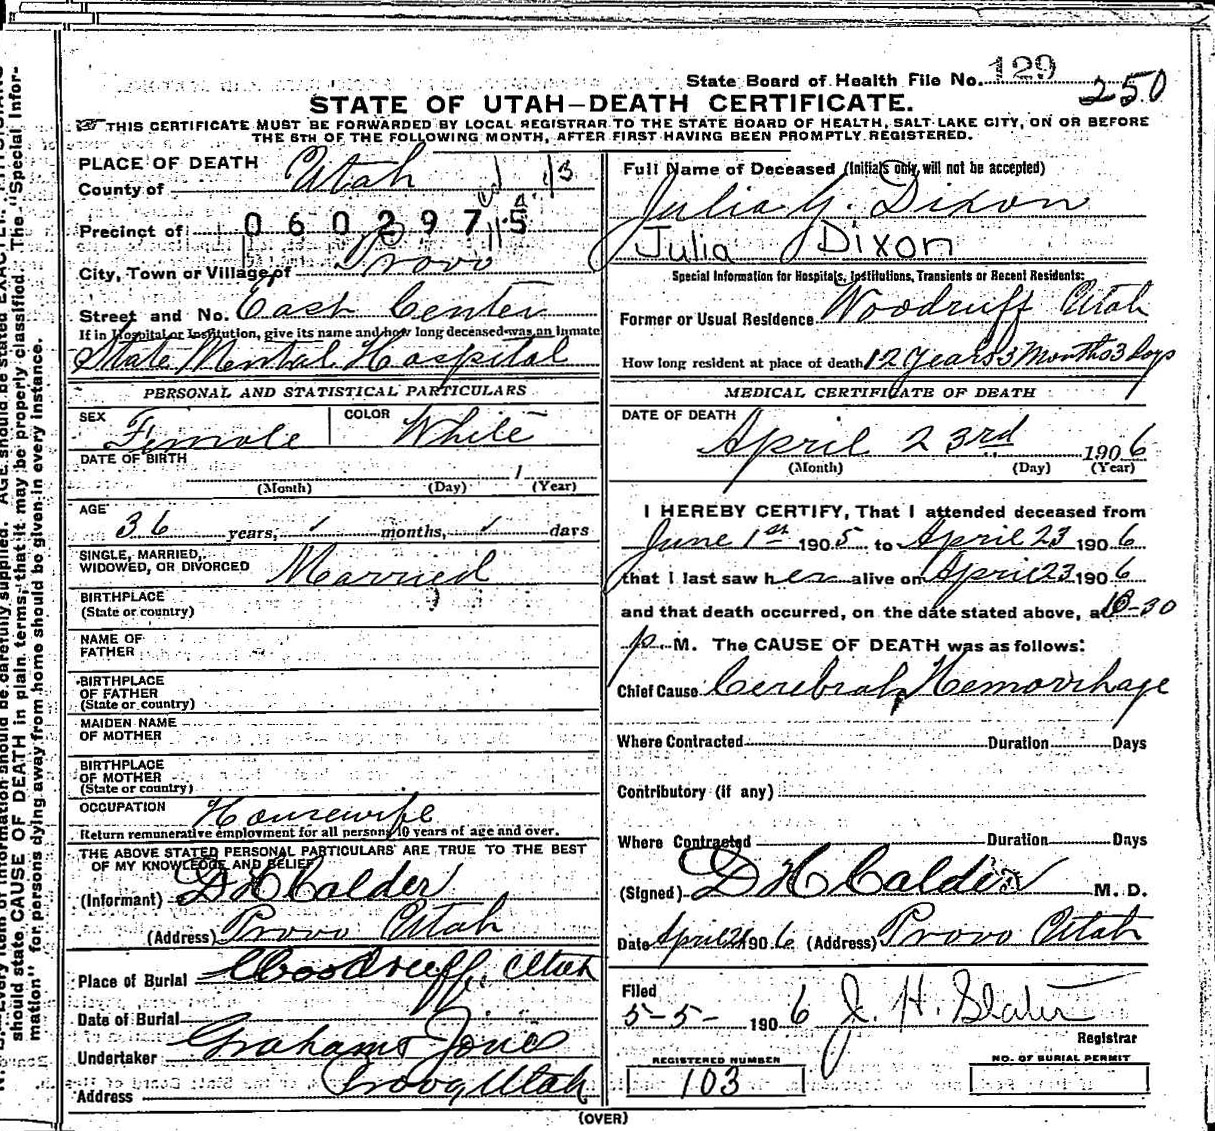 State Board of Health File No. 129
250
STATE OF UTAH—DEATH CERTIFICATE.
THIS CERTIFICATE MUST BE FORWARDED BY LOCAL REGISTRAR TO THE STATE BOARD OF HEALTH, SALT LAKE CITY, ON OR BEFORE
THE 5TH OF THE FOLLOWING MONTH, AFTER FIRST HAVING BEEN PROMPTLY REGISTERED.
PLACE OF DEATH
County of Utah
13
Precinct of
0602975
City, Town or Village of Provo
Street and No. East Center
If in Hospital or Institution, give its name and how long deceased was an Inmate
State Mental Hospital
PERSONAL AND STATISTICAL PARTICULARS
SEX Female COLOR White
DATE OF BIRTH
1
(Month) (Day) (Year)
AGE
36 years, months, days
SINGLE, MARRIED,
WIDOWED, OR DIVORCED Married
BIRTHPLACE
(State or country)
NAME OF
FATHER
BIRTHPLACE
OF FATHER
(State or country)
MAIDEN NAME
OF MOTHER
BIRTHPLACE
OF MOTHER
(State or country)
OCCUPATION Housewife
Return remunerative employment for all persons 10 years of age and over.
THE ABOVE STATED PERSONAL PARTICULARS ARE TRUE TO THE BEST
OF MY KNOWLEDGE AND BELIEF
(Informant) D H Calder
(Address) Provo Utah
Place of Burial Woodruff, Utah
Date of Burial
Undertaker Grahams Jones
Address Provo, Utah
Full Name of Deceased (Initials only, will not be accepted)
Julia Y. Dixon
Julia Dixon
Special Information for Hospitals, Institutions, Transients or Recent Residents:
Former or Usual Residence Woodruff Utah
How long resident at place of death 12 years 3 Months 3 days
MEDICAL CERTIFICATE OF DEATH
DATE OF DEATH
April 23rd 1906
(Month) (Day) (Year)
I HEREBY CERTIFY, That I attended deceased from
June 1st 1905 to April 23 1906
that I last saw her alive on April 23 1906
and that death occurred, on the date stated above, at 10-30
p. M. The CAUSE OF DEATH was as follows:
Chief Cause Cerebral Hemorrhage
Where Contracted Duration Days
Contributory (if any)
Where Contracted Duration Days
(Signed) D H Calder M. D.
Date April 1906 (Address) Provo Utah
Filed
5-5- 1906 J. H. Slater
Registrar
REGISTERED NUMBER
103
NO. OF BURIAL PERMIT
(OVER)
should state CAUSE OF DEATH in plain terms, that it may be properly classified. The "Special Infor-
mation" for persons dying away from home should be given in every instance.